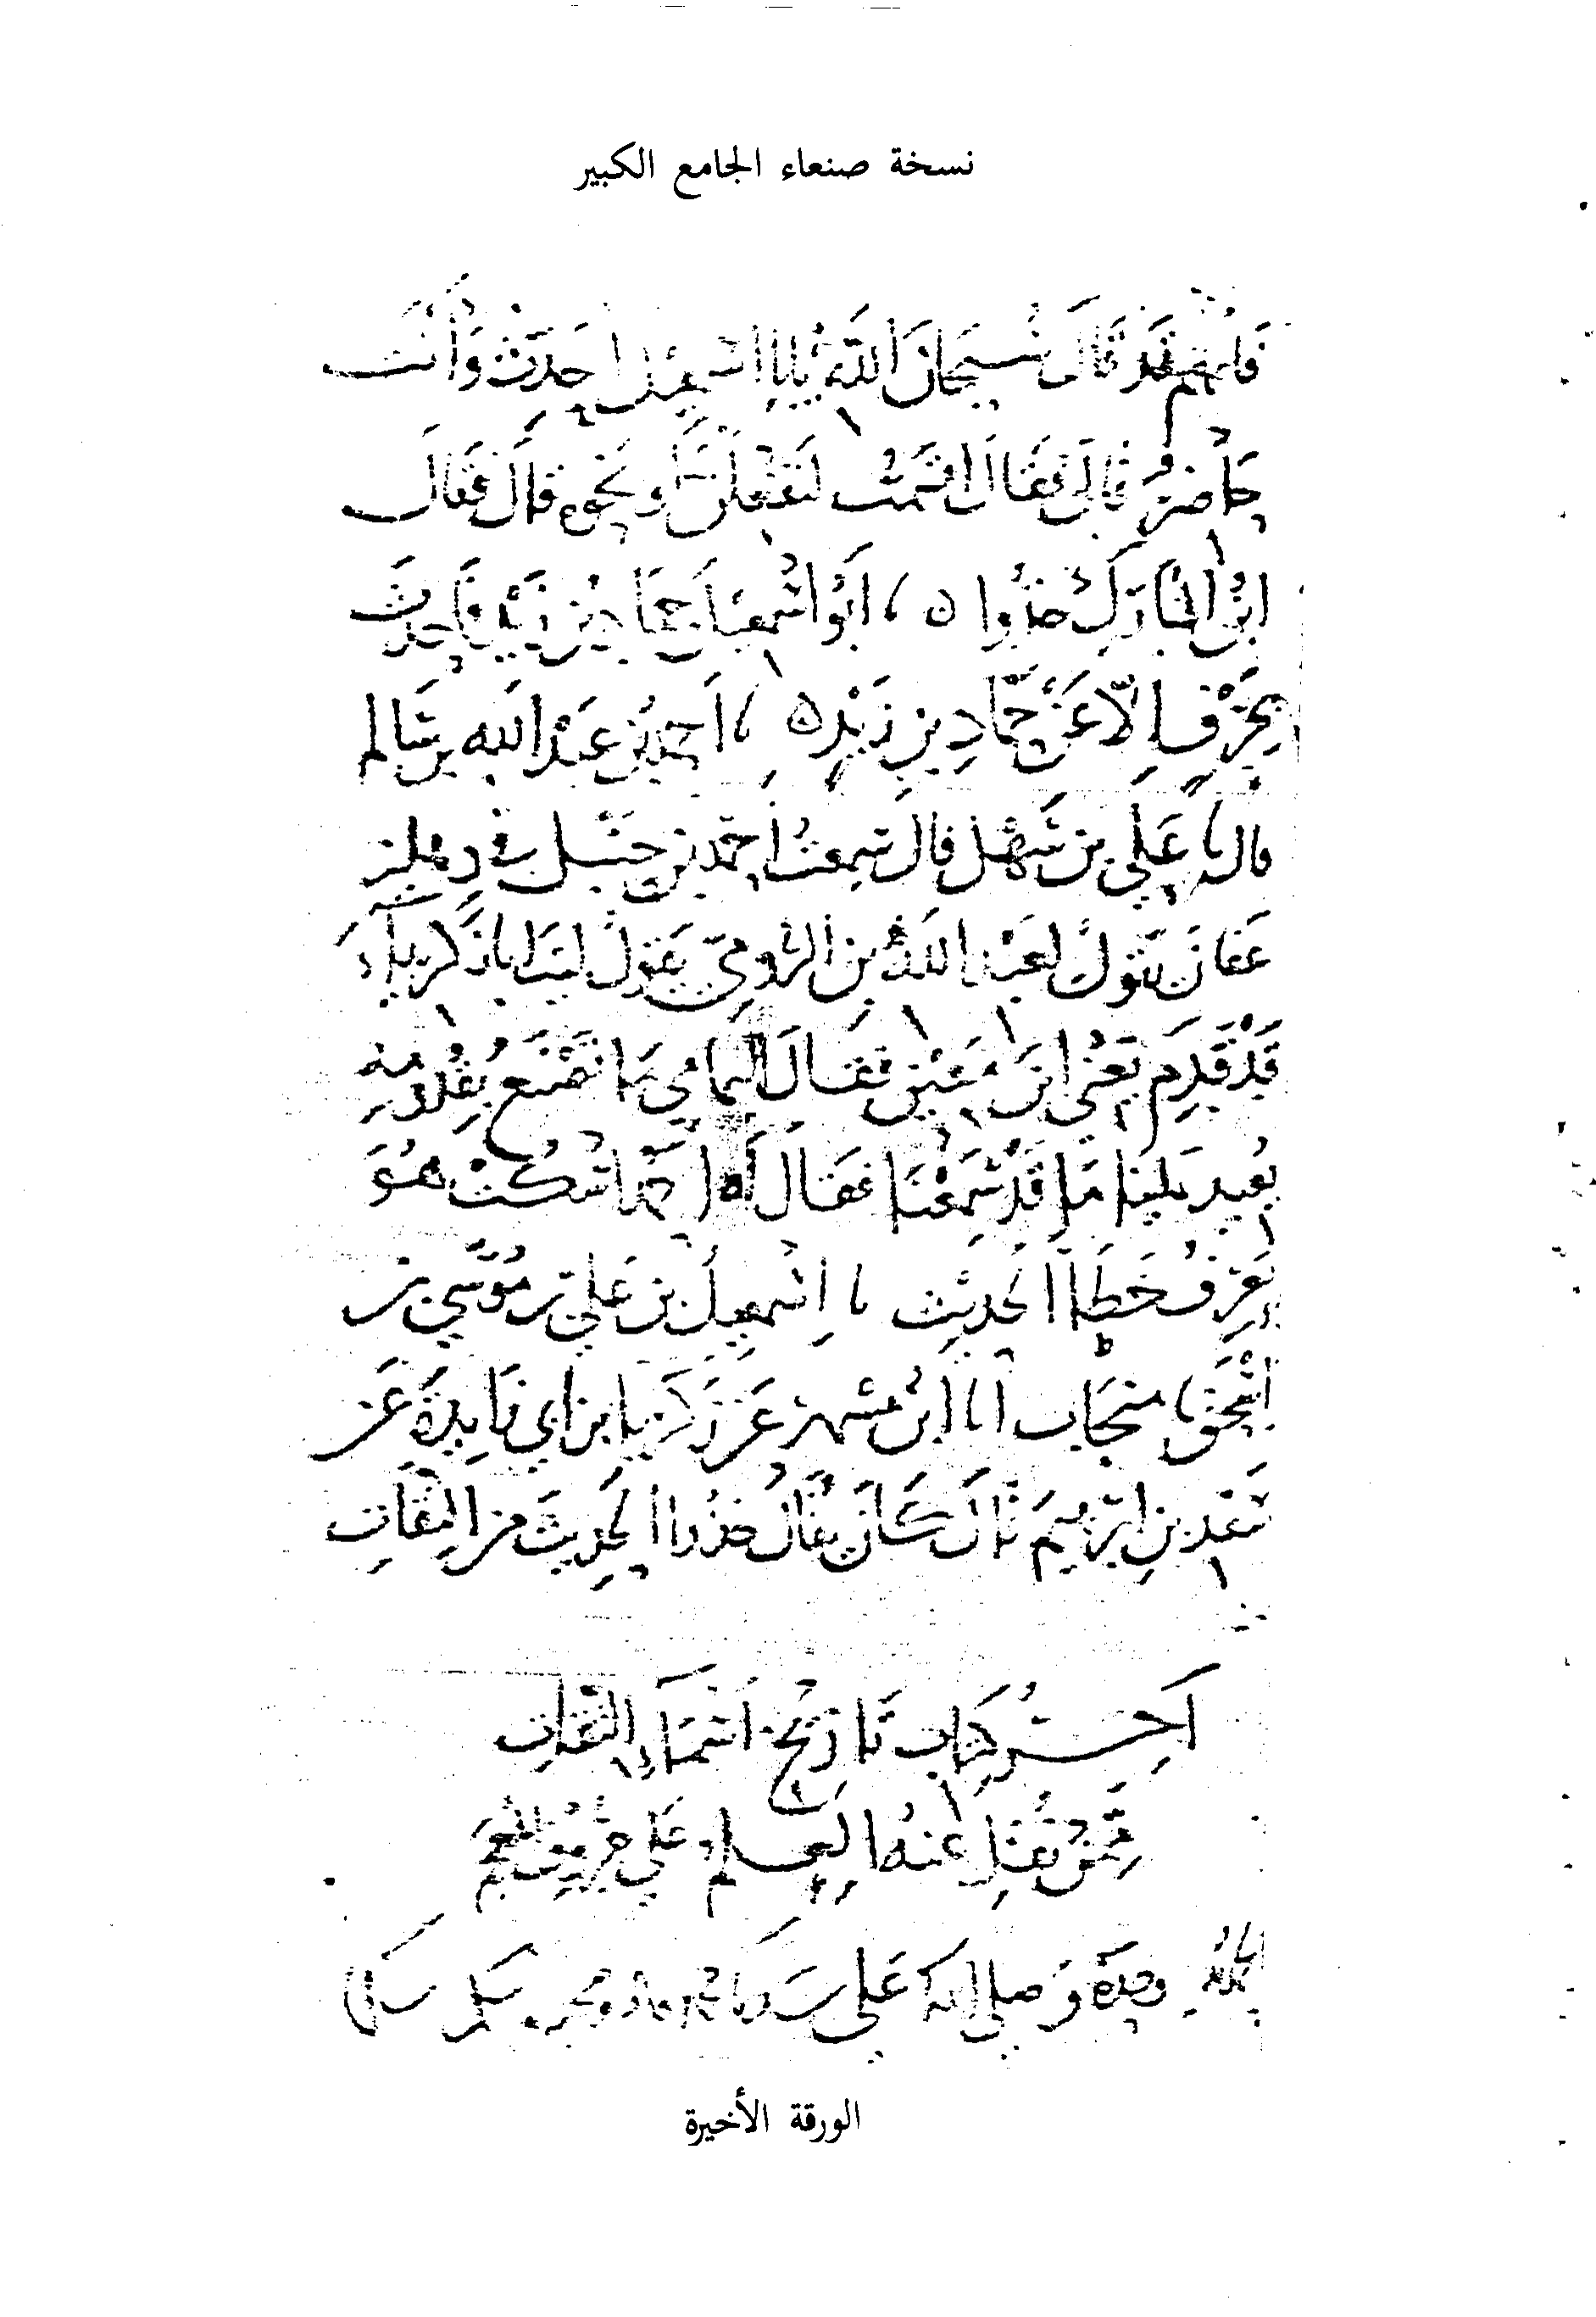 نسخة صنعاء الجامع الكبير
فانهم فقد قال سبحان الله يابا اسمعيل احدث وانت
حاضر قال فقال اقسمت لتفعلن او نحوه قال فقال
ابن المبارك خذوا ه نا ابو اسمعيل حماد بن زيد فما حدث
بحرف الا عن حماد بن زيد ه نا احمد بن عبد الله بن سالم
قال نا علي بن سهل قال سمعت احمد بن حنبل في دهليز
عفان يقول لعبد الله بن الرومي يقول ليت ابا زكرياء
قد قدم يعني ابن معين فقال اليمامي ما تصنع بقدومه
يعيد علينا ما قد سمعنا فقال له احمد اسكت هو
يعرف خطأ الحديث نا اسمعيل بن علي نا موسى بن
اسحق نا منجاب انا ابن مسهر عن زكريا بن ابي زايدة عن
سعد بن ابرهيم قال كان يقال خذوا الحديث من الثقات
آخر كتاب تاريخ اسماء الثقات
ممن نقل عنه العلم على حروف المعجم
الحمد لله وحده وصلى الله على سيدنا محمد واله وصحبه وسلم
الورقة الأخيرة